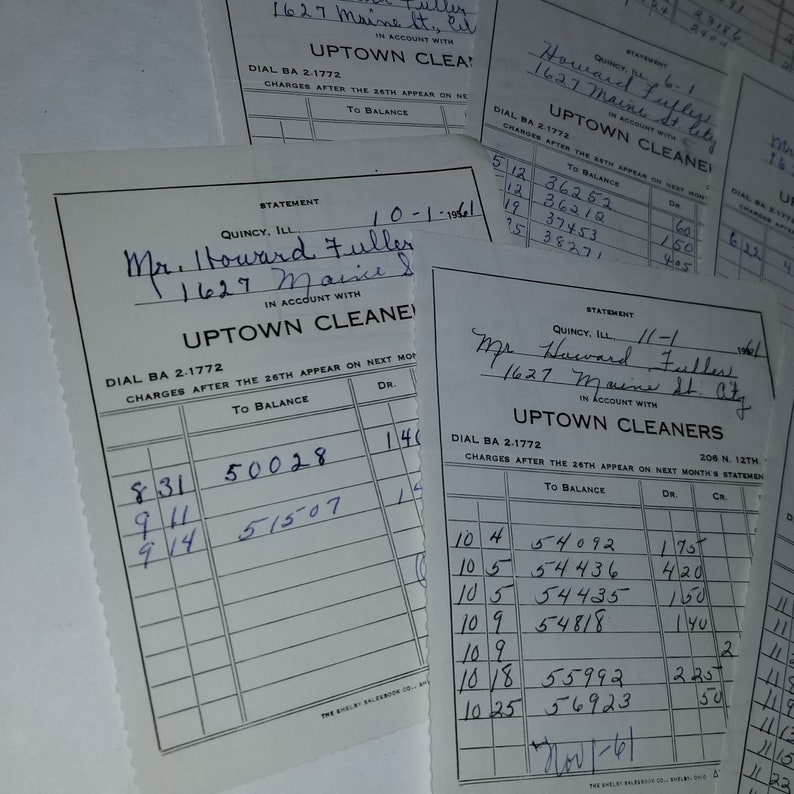 Fuller
1627 Maine St.,
IN ACCOUNT WITH
UPTOWN CLEA
DIAL BA 2-1772
CHARGES AFTER THE 26TH APPEAR ON NE
TO BALANCE
23186
STATEMENT
QUINCY, ILL. 6-1
Howard Fuller
1627 Maine St. City
IN ACCOUNT WITH
UPTOWN CLEANER
DIAL BA 2-1772
CHARGES AFTER THE 26TH APPEAR ON NEXT MONT
TO BALANCE DR.
5 12 36252 60
12 36212 1 50
19 37453 4 05
25 38271
6 22 4
STATEMENT
QUINCY, ILL. 10-1- 1961
Mr. Howard Fuller
1627 Maine S
IN ACCOUNT WITH
UPTOWN CLEANE
DIAL BA 2-1772
CHARGES AFTER THE 26TH APPEAR ON NEXT MON
TO BALANCE DR.
8 31 50028 1 40
9 11
9 14 51507 1 4
THE SHELBY SALESBOOK CO., SH
STATEMENT
QUINCY, ILL. 11-1 1961
Mr Howard Fuller
1627 Maine St. City
IN ACCOUNT WITH
UPTOWN CLEANERS
DIAL BA 2-1772 206 N. 12TH.
CHARGES AFTER THE 26TH APPEAR ON NEXT MONTH'S STATEMEN
TO BALANCE DR. CR.
10 4 54092 1 75
10 5 54436 4 20
10 5 54435 1 50
10 9 54818 1 40
10 9 2
10 18 55992 2 25
10 25 56923 50
Nov 1-61
THE SHELBY SALESBOOK CO., SHELBY, OHIO
11
11
11
11 8
11 9
11 13
11 15
11 22